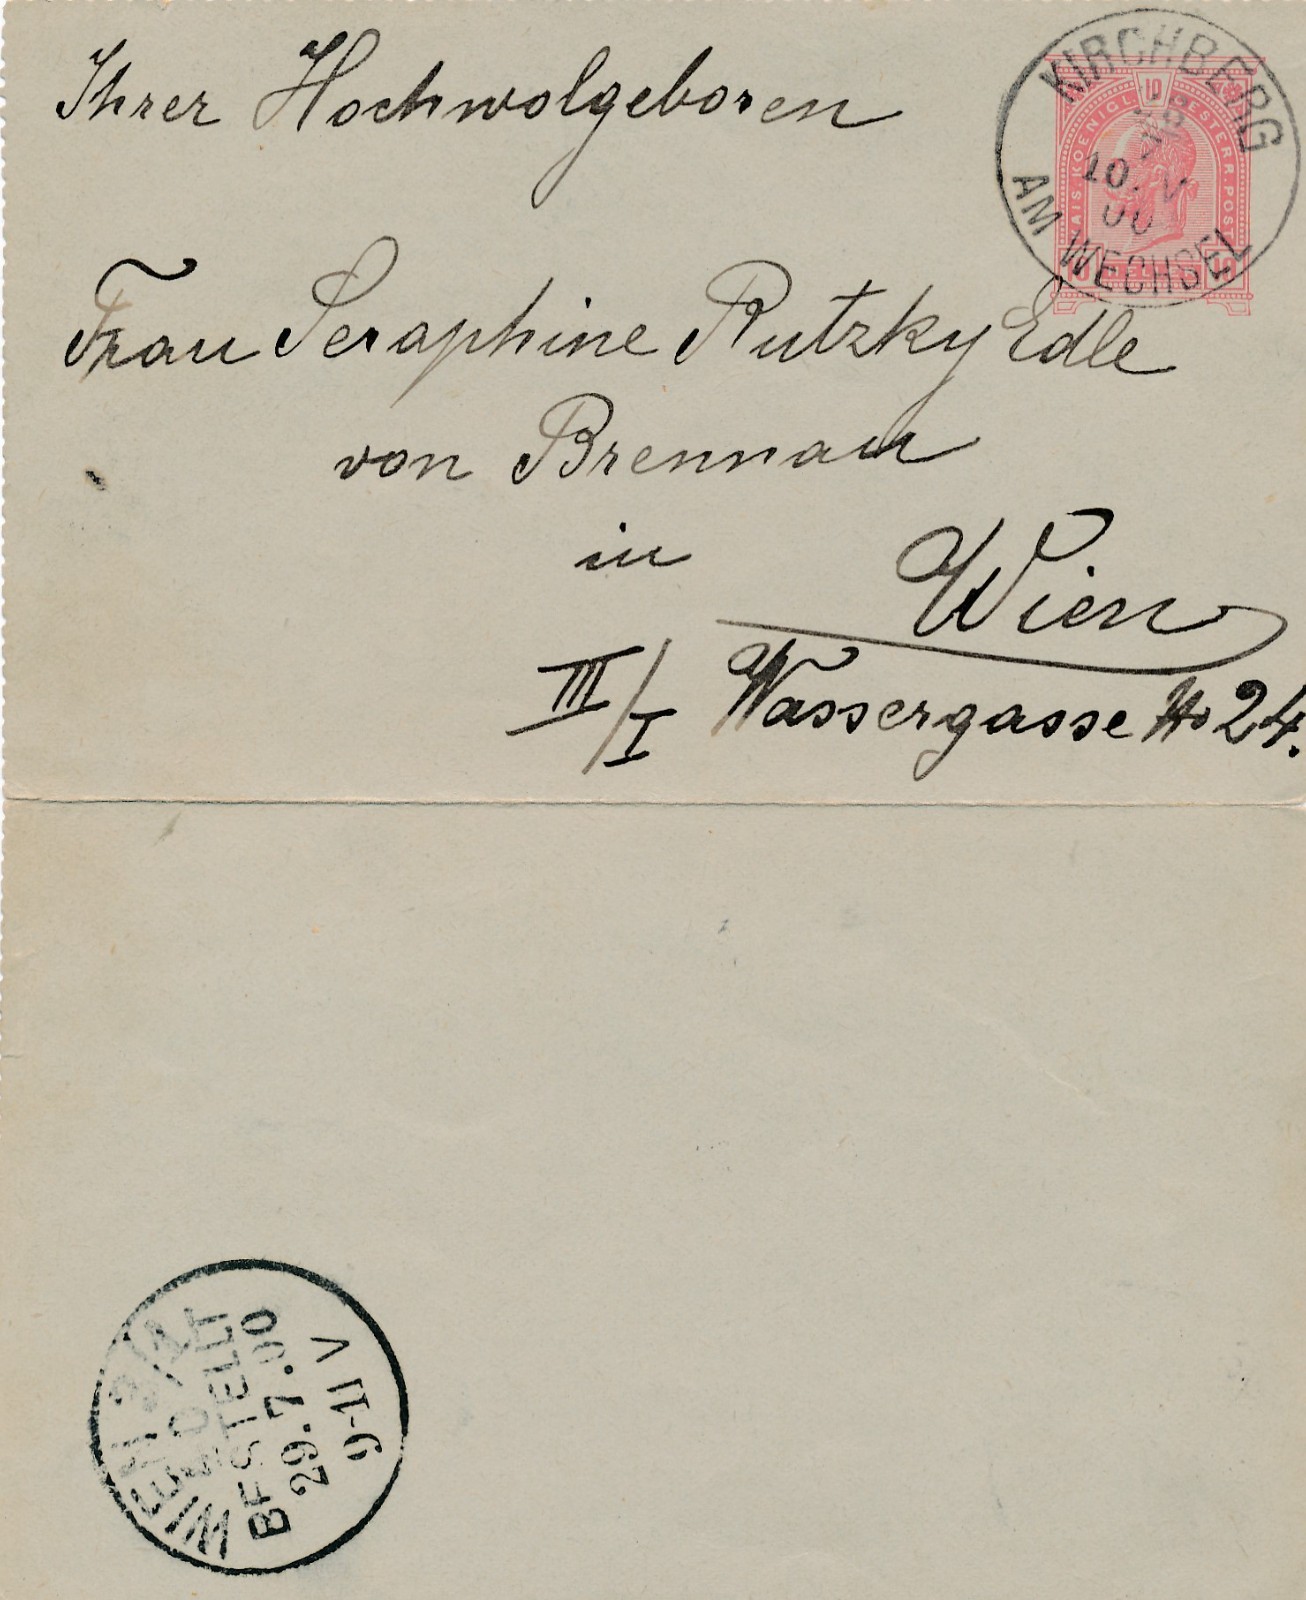 Ihrer Hochwolgeboren
Frau Seraphine Rutzky Edle
von Brennau
in Wien
III/I Wassergasse No 24.
KAIS. KOENIGL. OESTERR. POST
10
10 10
KIRCHBERG
10. V
00
AM WECHSEL
WIEN 3/1
BESTELLT
29.7.00
9-11 V